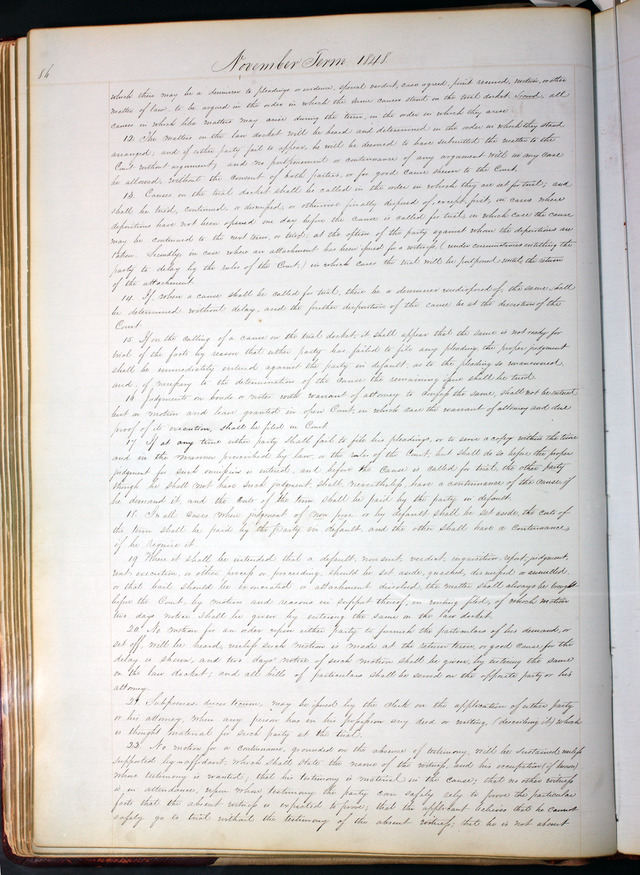 86
November Term 1848
which there may be a demurrer to pleadings or evidence, special verdict, case agreed, point reserved, motion, or other
matter of law, to be argued in the order in which the same causes stand on the trial docket. Second, all
causes in which like matters may arise during the term, in the order in which they arise
12. The matters on the law docket will be heard and determined in the order in which they stand
arranged; and if either party fail to appear, he will be deemed to have submitted the matter to the
Court without argument; and no postponement or continuance of any argument will in any case
be allowed, without the consent of both parties, or for good cause shewn to the Court.
13. Causes on the trial docket shall be called in the order in which they are set for trial; and
shall be tried, continued, or dismissed, or otherwise finally disposed of, except, first, in cases where
depositions have not been opened one day before the cause is called for trial, in which case the cause
may be continued to the next term, or tried, at the option of the party against whom the depositions are
taken. Secondly, in case where an attachment has been issued for a witness, (under circumstances entitling the
party to delay by the rules of the Court,) in which cases the trial will be postponed until the return
of the attachment.
14. If when a cause shall be called for trial, there be a demurrer undisposed of, the same shall
be determined without delay, and the further disposition of the cause be at the discretion of the
Court.
15. If on the calling of a cause on the trial docket, it shall appear that the same is not ready for
trial of the facts by reason that either party has failed to file any pleading, the proper judgment
shall be immediately entered against the party in default, as to the pleading so unanswered,
and, if necessary to the determination of the cause the remaining issue shall be tried.
16. Judgments on bonds or notes with warrant of attorney to confess the same, shall not be entered
but on motion and leave granted in open Court, in which case the warrant of attorney and due
proof of its execution, shall be filed in Court
17. If at any time either party shall fail to file his pleadings, or to serve a copy within the time
and in the manner prescribed by law, or the rules of the Court, but shall do so before the proper
judgment for such omission is entered, and before the Cause is called for trial, the other party
though he shall not have such judgment shall, nevertheless have a continuance of the cause if
he demand it, and the costs of the term shall be paid by the party in default.
18. In all cases where judgment of non pros or by default shall be set aside, the costs of
the term shall be paid by the party in default, and the other shall have a Continuance
if he require it
19. Where it shall be intended that a default, nonsuit, verdict, inquisition, report, judgment,
writ, execution, or other, process or proceeding, should be set aside, quashed, dismissed or annulled,
or that bail should be exonerated, or attachment dissolved, the matter shall always be brought
before the Court, by motion and reasons in support thereof, in writing filed, of which motion
two days notice shall be given by entering the same on the law docket.
20. No motion for an order upon either party to furnish the particulars of his demand, or
set off, will be heard, unless such motion is made at the return term, or good cause for the
delay is shewn, and two days notice of such motion shall be given, by entering the same
on the law docket; and all bills of particulars shall be served on the opposite party or his
attorney.
21. Subpoenas duces tecum, may be issued by the clerk on the application of either party
or his attorney, when any person has in his possession any deed or writing, (describing it) which
is thought material for such party at the trial.
22. No motion for a continuance, grounded on the absence of testimony, will be sustained unless
supported by affidavit, which shall state the name of the witness, and his occupation (if known)
whose testimony is wanted; that his testimony is material in the cause; that no other witness
is in attendance, upon whose testimony the party can safely rely to prove the particular
facts that the absent witness is expected to prove; that the applicant believes that he cannot
safely go to trial without the testimony of the absent witness; that he is not absent